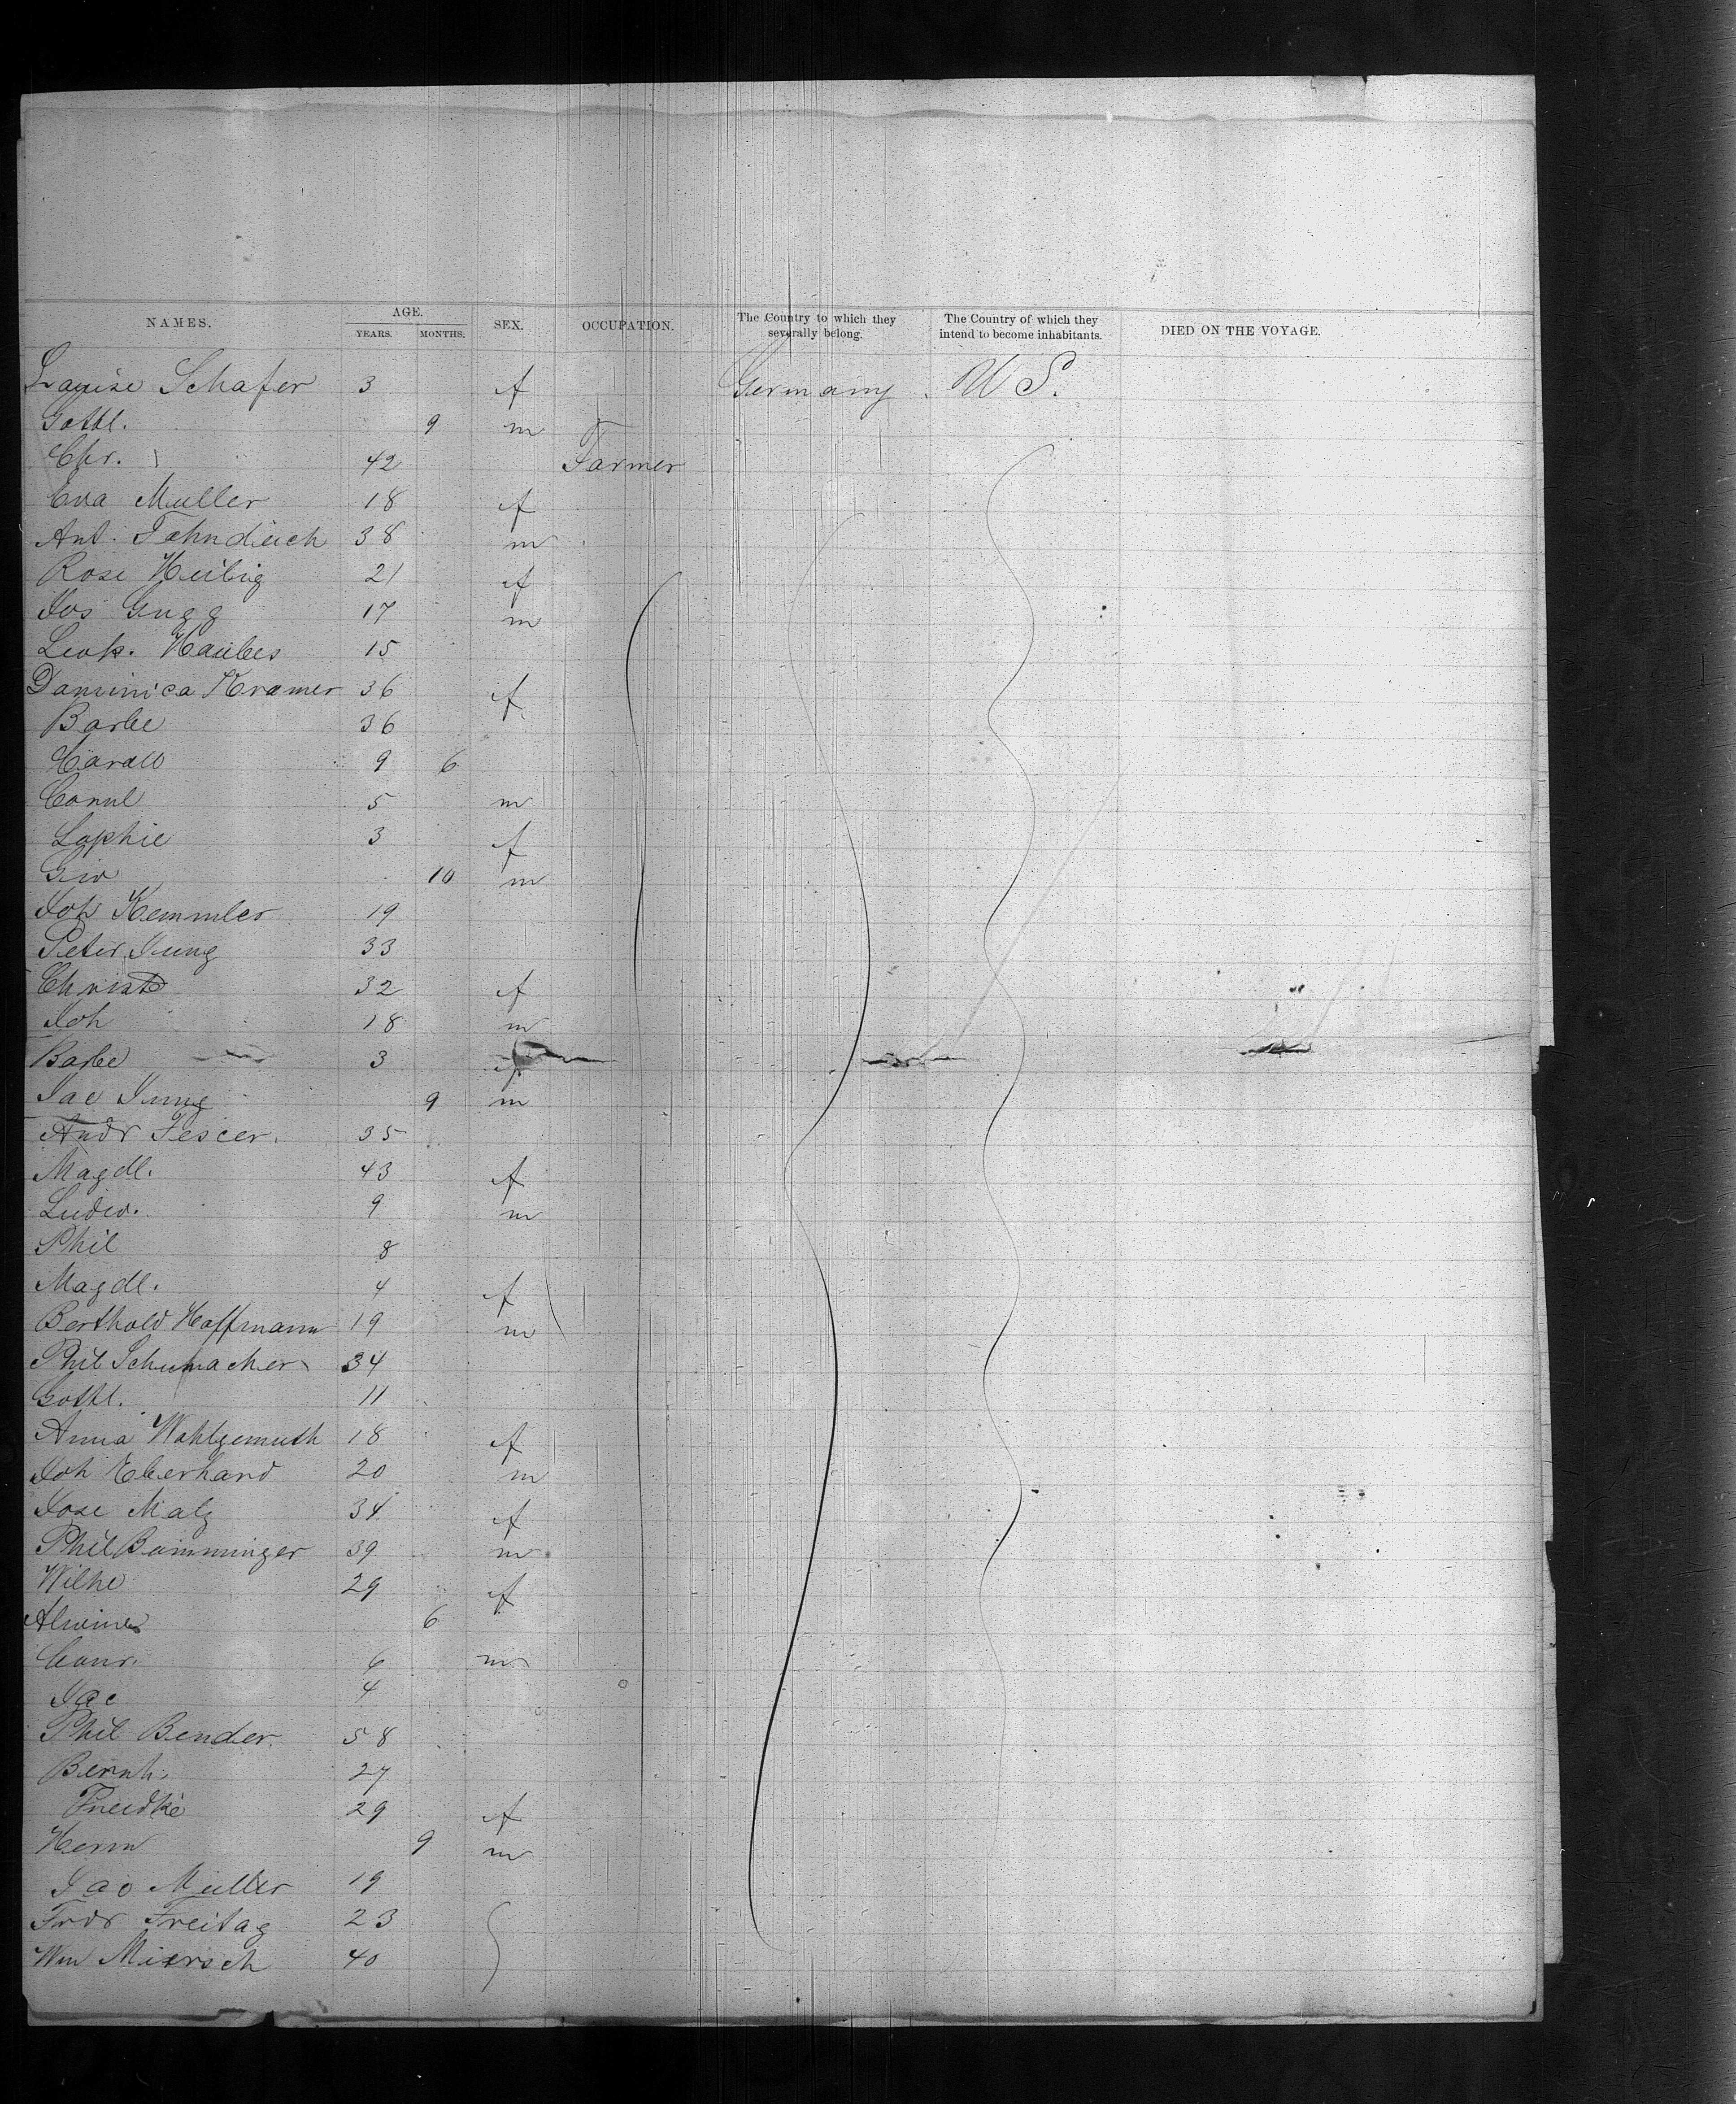 NAMES. AGE. YEARS. MONTHS. SEX. OCCUPATION. The Country to which they severally belong. The Country of which they intend to become inhabitants. DIED ON THE VOYAGE.
Louise Schafer 3 f Germany. U S.
Gottl. 9 m
Chr. 42 Farmer
Eva Muller 18 f
Ant. 38 m
Rose Heibig 21 f
Jos Gugg 17 m
Leok. 15
Dominica Kramer 36 f
Barbe 36
9 6
5 m
Sophie 3 f
10 m
Joh Kemmler 19
Peter Jung 33
Christ 32 f
Joh 18 m
Barbe 3 f
Jac Jung 9 m
Andr Fescer. 35
Magdl. 43 f
Ludw. 9 m
Phil 8
Magdl. 4 f
Berthold Hoffmann 19 m
Phil Schumacher 34
Gottl. 11
Anna Wohlgemuth 18 f
Joh Eberhard 20 m
Jose Malz 34 f
Phil Bamminger 39 m
Wilhe 29 f
Alwine 6
Conr. 6 m
Jac 4
Phil Bender 58
Bernh. 27
Friedke 29 f
Herm 9 m
Jac Muller 19
Frdr Freitag 23
Wm Miersch 40